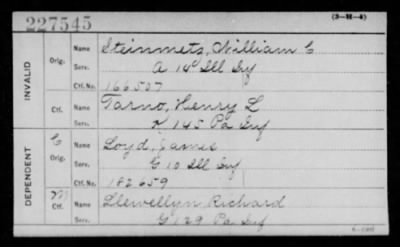 227545
(3-H-4)
INVALID
Orig.
Name Steinmets, William C
Serv. A 14 Ill Inf
Ctf. No. 166507
Ctf.
Name Tarno, Henry L
Serv. K 145 Pa Inf
DEPENDENT
C
Orig.
Name Loyd, James
Serv. G 10 Ill Inf
Ctf. No. 182659
M
Ctf.
Name Llewellyn, Richard
Serv. G 129 Pa Inf